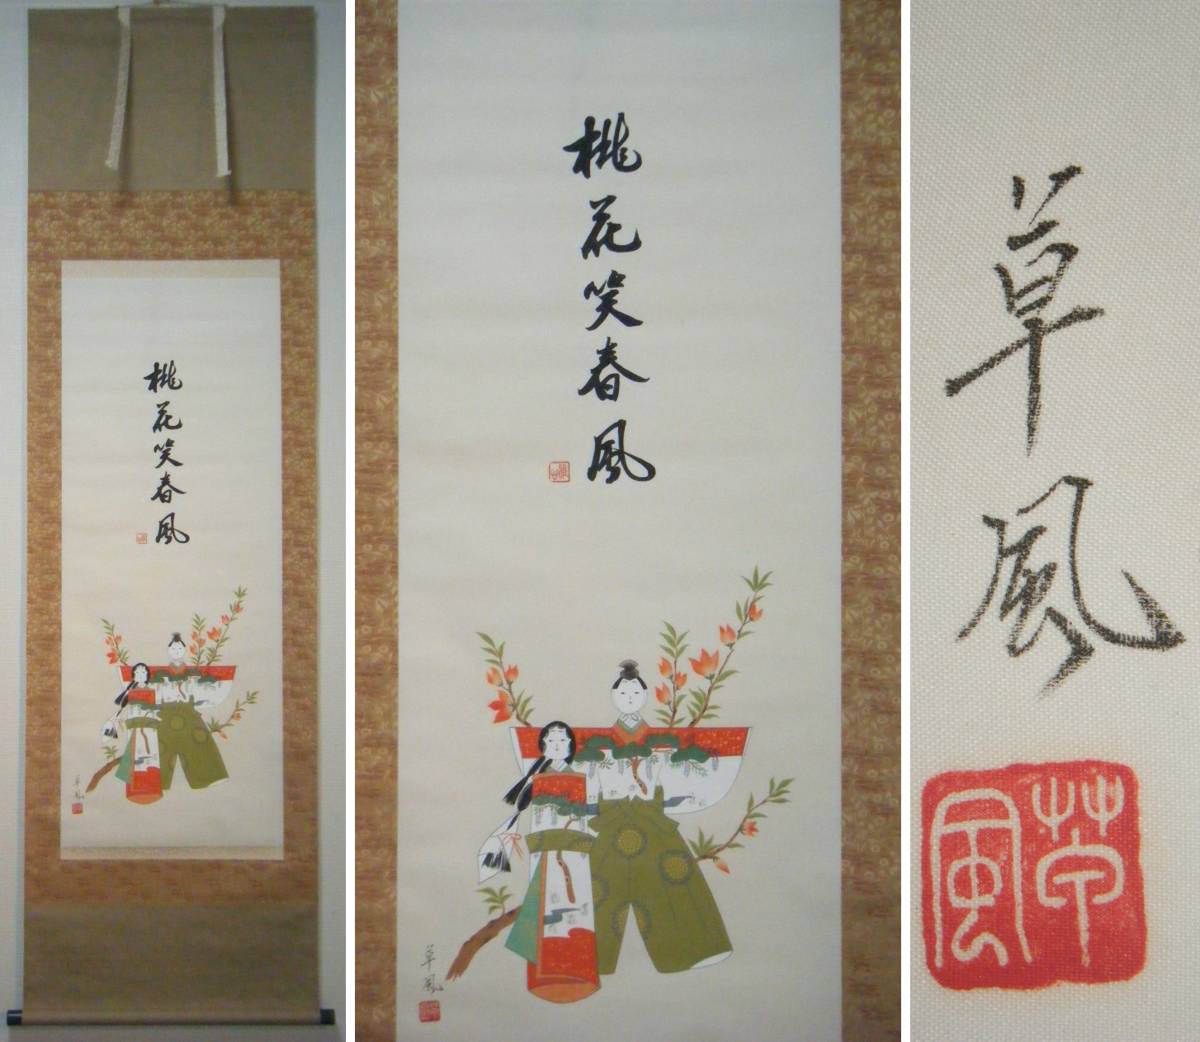 桃花笑春風
草風
桃花笑春風
草風
草風
草風